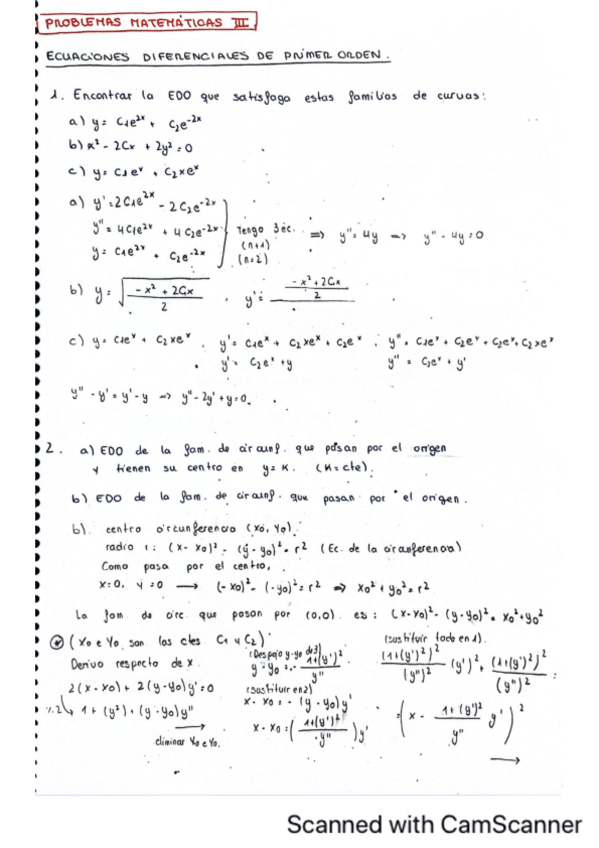 PROBLEMAS MATEMÁTICAS III.
ECUACIONES DIFERENCIALES DE PRIMER ORDEN.
1. Encontrar la EDO que satisfaga estas familias de curvas:
a) y = C1e^2x + C2e^-2x
b) x² - 2Cx + 2y² = 0
c) y = C1e^x + C2xe^x
a) y' = 2C1e^2x - 2C2e^-2x
y'' = 4C1e^2x + 4C2e^-2x
y = C1e^2x + C2e^-2x
Tengo 3 ec. (n+1) (n=2)
=> y'' = 4y => y'' - 4y = 0
b) y = √((-x² + 2Cx)/2) . y' =
-x² + 2Cx
2
c) y = C1e^x + C2xe^x . y' = C1e^x + C2xe^x + C2e^x . y'' = C1e^x + C2e^x + C2e^x + C2xe^x
y' = C2e^x + y y'' = C2e^x + y'
y'' - y' = y' - y => y'' - 2y' + y = 0.
2. a) EDO de la fam. de circunf. que pasan por el origen
y tienen su centro en y = K. (K = cte).
b) EDO de la fam. de circunf. que pasan por el origen.
b). centro circunferencia (x0, y0).
radio r: (x - x0)² - (y - y0)² = r² (Ec. de la circunferencia)
Como pasa por el centro,
x=0, y=0 → (-x0)² - (-y0)² = r² => x0² + y0² = r²
La fam. de circ. que pasan por (0,0). es: (x-x0)² - (y-y0)² = x0² + y0²
(x0 e y0 son las ctes C1 y C2)
Derivo respecto de x.
2(x-x0) + 2(y-y0)y' = 0
1 + (y²) + (y-y0)y''
eliminar x0 e y0.
(Despejo y-y0 de 3)
y - y0 = - (1+(y')²)/y''
(sustituir en 2)
x - x0 = - (y - y0)y'
x - x0 = ((1+(y')²)/y'')y'
(sustituir todo en 1).
(1+(y')²)²/(y'')² (y')² + (1+(y')²)²/(y'')²
= (x - (1+(y')²)/y'' y')²
→
Scanned with CamScanner